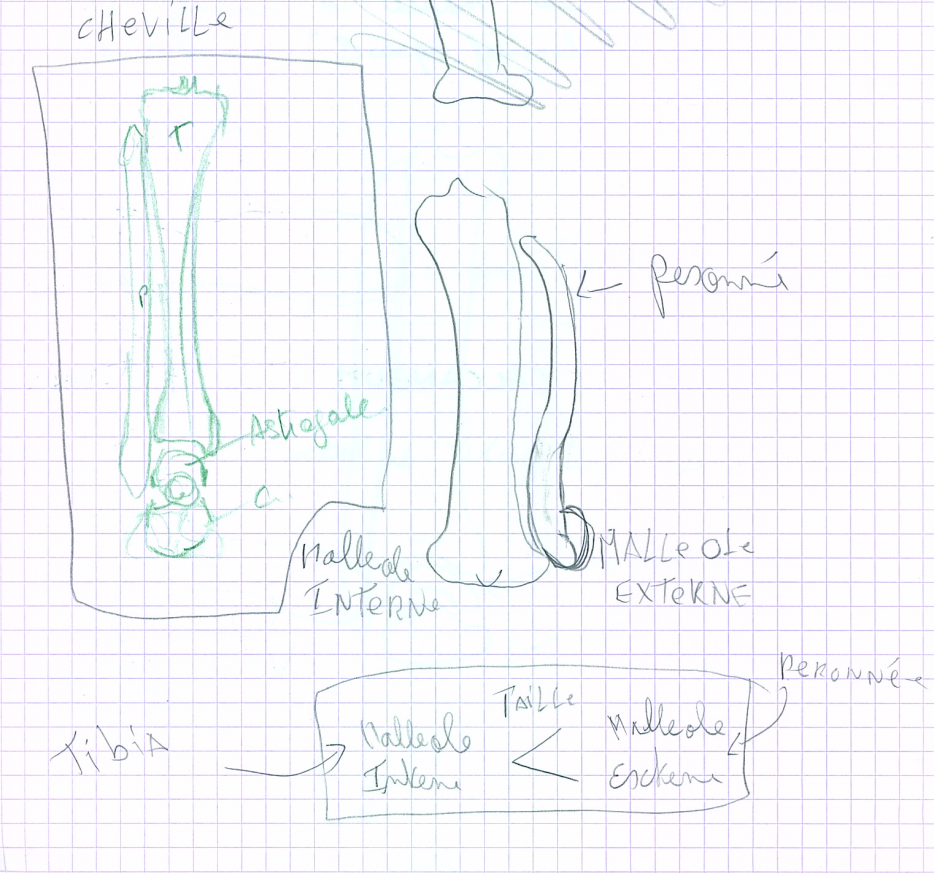 CHEVILLE
T
Peronné
P
Astragale
C
Malleole
INTERNE
MALLEOLE
EXTERNE
PERONNÉe
TAILLE
Tibia
Malleole
Interne
<
Malleole
Externe